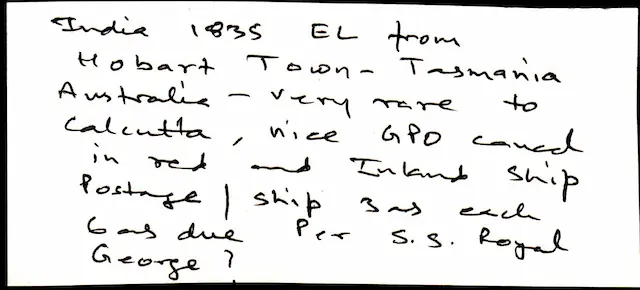 India 1835 EL from
Hobart Town - Tasmania
Australia - very rare to
Calcutta, nice GPO cancel
in red and Inland Ship
Postage / Ship 3as each
6as due Per S.S. Royal
George?